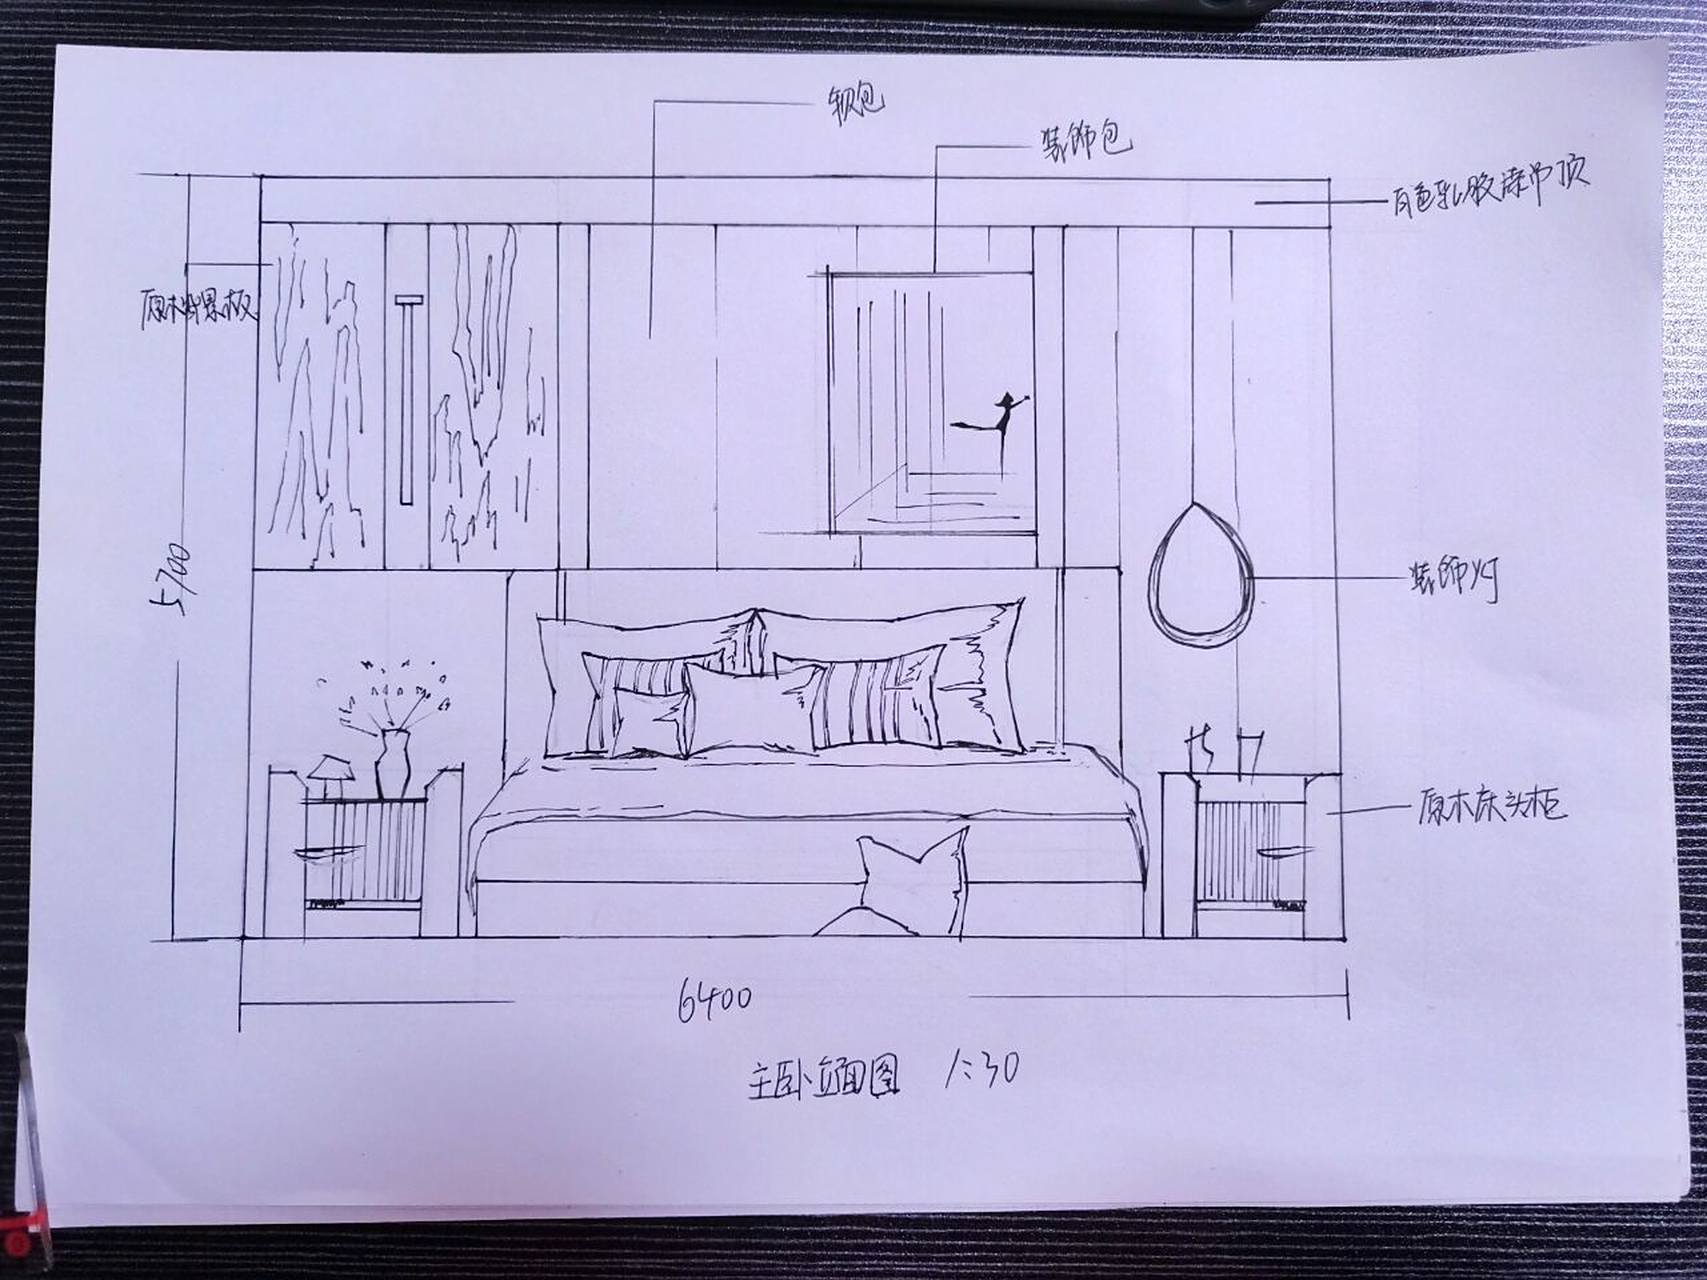 软包
装饰包
白色乳胶漆吊顶
原木背景板
5700
装饰灯
原木床头柜
6400
主卧立面图 1:30